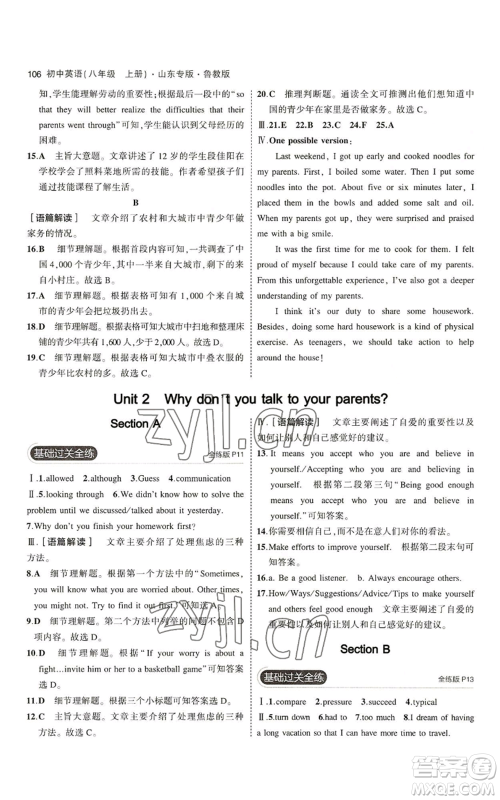 106 初中英语(八年级 上册)·山东专版·鲁教版
知,学生能理解劳动的重要性。根据最后一段中的“so
that they will better realize the difficulties that their
parents went through”可知,学生能意识到父母经历的
困难。故选B。
15.A 主旨大意题。文章讲述了 12 岁的学生段佳阳在
学校学会了照料菜地所需的技能。作者希望孩子们
通过技能课程了解自己。故选A。
B
[语篇解读] 文章介绍了农村和大城市中青少年做
家务的情况。
16.B 细节理解题。根据表格可知,这一组调查了中国
4,000 个青少年,其中一半来自大城市,一半来自乡
来小村庄。故选B。
17.A 细节理解题。根据表格可知有 1,000 个来自大城
市的青少年会把垃圾扔出去。故选A。
18.D 细节理解题。根据表格可知大城市中扫地和整理床
铺的青少年共有 1,600 人,少于2,000 人。故选D。
19.C 细节理解题。根据表格可知大城市中叠衣服的
青少年比农村的多。故选C。
20.C 推理判断题。通读全文可推测出我们可以从中国
的青少年家庭杂志上看到这篇文章。故选C。
Ⅲ.21.E 22.B 23.C 24.F 25.A
Ⅳ.One possible version:
Last weekend, I got up early and cooked noodles for
my parents. First, I put some water in the pot. Then I put
some noodles into it. About five or six minutes later, I
put them in bowls and added some salt and oil. When
my parents got up, they were surprised and praised me
with a big smile.
It was the first time for me to cook for them. I felt
proud of myself because I could take care of my parents.
From this unforgettable experience, I got a deeper
understanding of my parents.
I think it's our duty to share some housework.
Besides, doing some hard housework is a kind of physical
exercise. As teenagers, we should take action to help
around the house!
Unit 2 Why don't you talk to your parents?
Section A
基础过关全练 全练版 P11
Ⅰ.1.allowed 2.although 3.Guess 4.communication
Ⅱ.5.looking through 6.We didn't know how to solve the
problem until we discussed/talked about it yesterday.
7.Why don't you finish your homework first?
Ⅲ.[语篇解读] 文章主要介绍了处理焦虑的三种
方法。
8.A 细节理解题。根据第一个方法中的“Sometimes,
you will know what others are worried about. Other times,
you might not. Try to find out first.”可知选A。
9.D 细节理解题。第二个方法中所列的问题不包含D
项内容。故选D。
10.D 细节理解题。根据“If your worry is about a
fight...invite him or her to a basketball game”可知答案
选D。
11.D 细节理解题。根据三个小标题可知答案选D。
12.C 主旨大意题。文章主要介绍了处理焦虑的三种
方法。故选C。
Ⅳ.[语篇解读] 文章主要阐述了自爱的重要性以
及如何让别人和自己感觉好的建议。
13.It means you accept who you are and believe in
yourself./It means accepting who you are and believing in
yourself. 根据第二段第三句“Being enough
means that you accept who you are and believe in
yourself.”可知答案。
14.你需要相信自己,而不仅仅是获得奖章。
15.Make efforts to improve yourself. 根据最后一段末句可
知答案。
16.a. Be a good listener. b. Always encourage others.
17.How/Ways/Suggestions/Advice to make yourself
and others feel good enough 文章主要阐述了自爱的
重要性以及如何让别人和自己感觉好的建议。
Section B
基础过关全练 全练版 P13
Ⅰ.1.compare 2.pressure 3.succeed 4.typical
Ⅱ.5.turn down 6.too much 7.much too 8.instead of
having a long vacation, so they don't have more or much
time to travel.
zyjl.cn
zyjl.cn